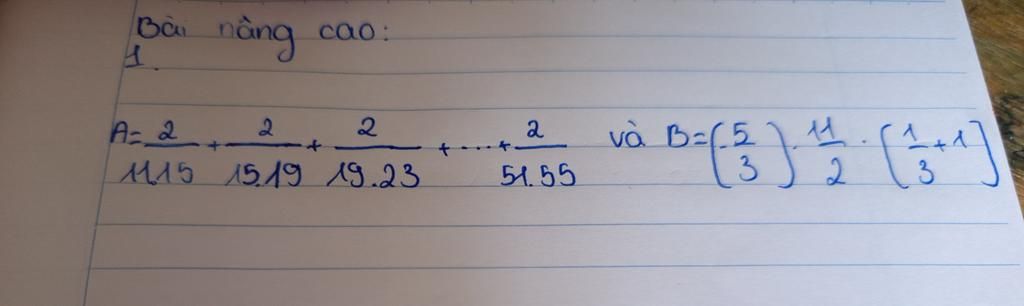 Bài nâng cao:
1.
A = 2/11.15 + 2/15.19 + 2/19.23 + .... + 2/51.55 và B = (-5/3) . 11/2 . (1/3 + 1)